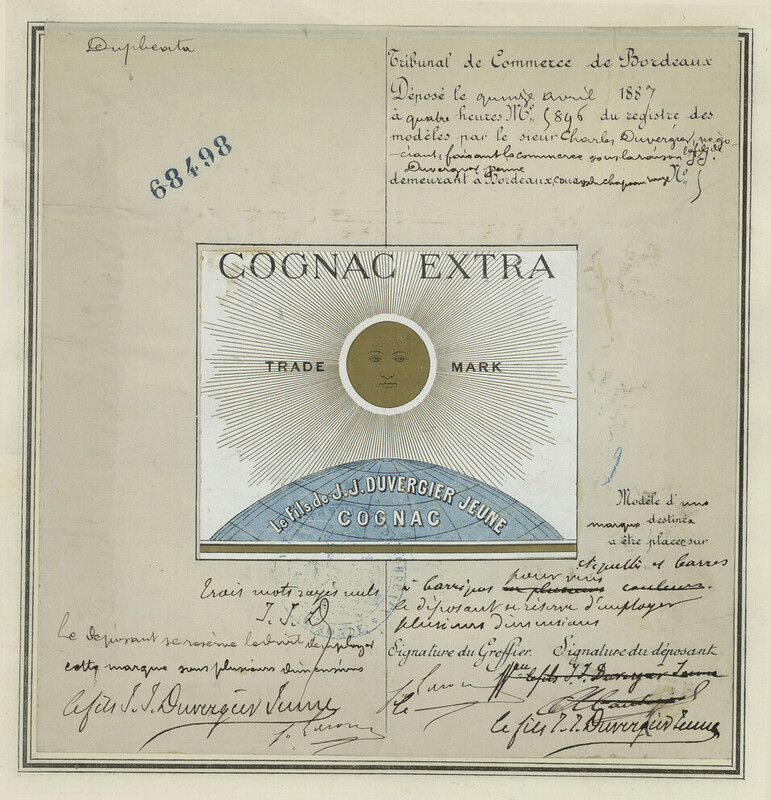 Duplicata
68498
Tribunal de Commerce de Bordeaux
Déposé le quinze avril 1887
à quatre heures No. 5896 du registre des
modèles par le sieur Charles Duvergier, négo-
ciant, faisant le commerce sous la raison
Duvergier jeune
demeurant à Bordeaux, chapeau rouge No. 5
COGNAC EXTRA
TRADE MARK
Le Fils de J. J. DUVERGIER JEUNE
COGNAC
Modèle d'une
marque destinée
à être placée sur
et barres
à barriques pour vins en plusieurs couleurs.
le déposant se réserve d'employer
plusieurs dimensions
Trois mots rayés nuls
J. J. D
Le déposant se réserve le droit d'employer
cette marque sous plusieurs dimensions
le fils J. J. Duvergier Jeune
Signature du Greffier. Signature du déposant
le fils J. J. Duvergier Jeune
le fils J. J. Duvergier Jeune